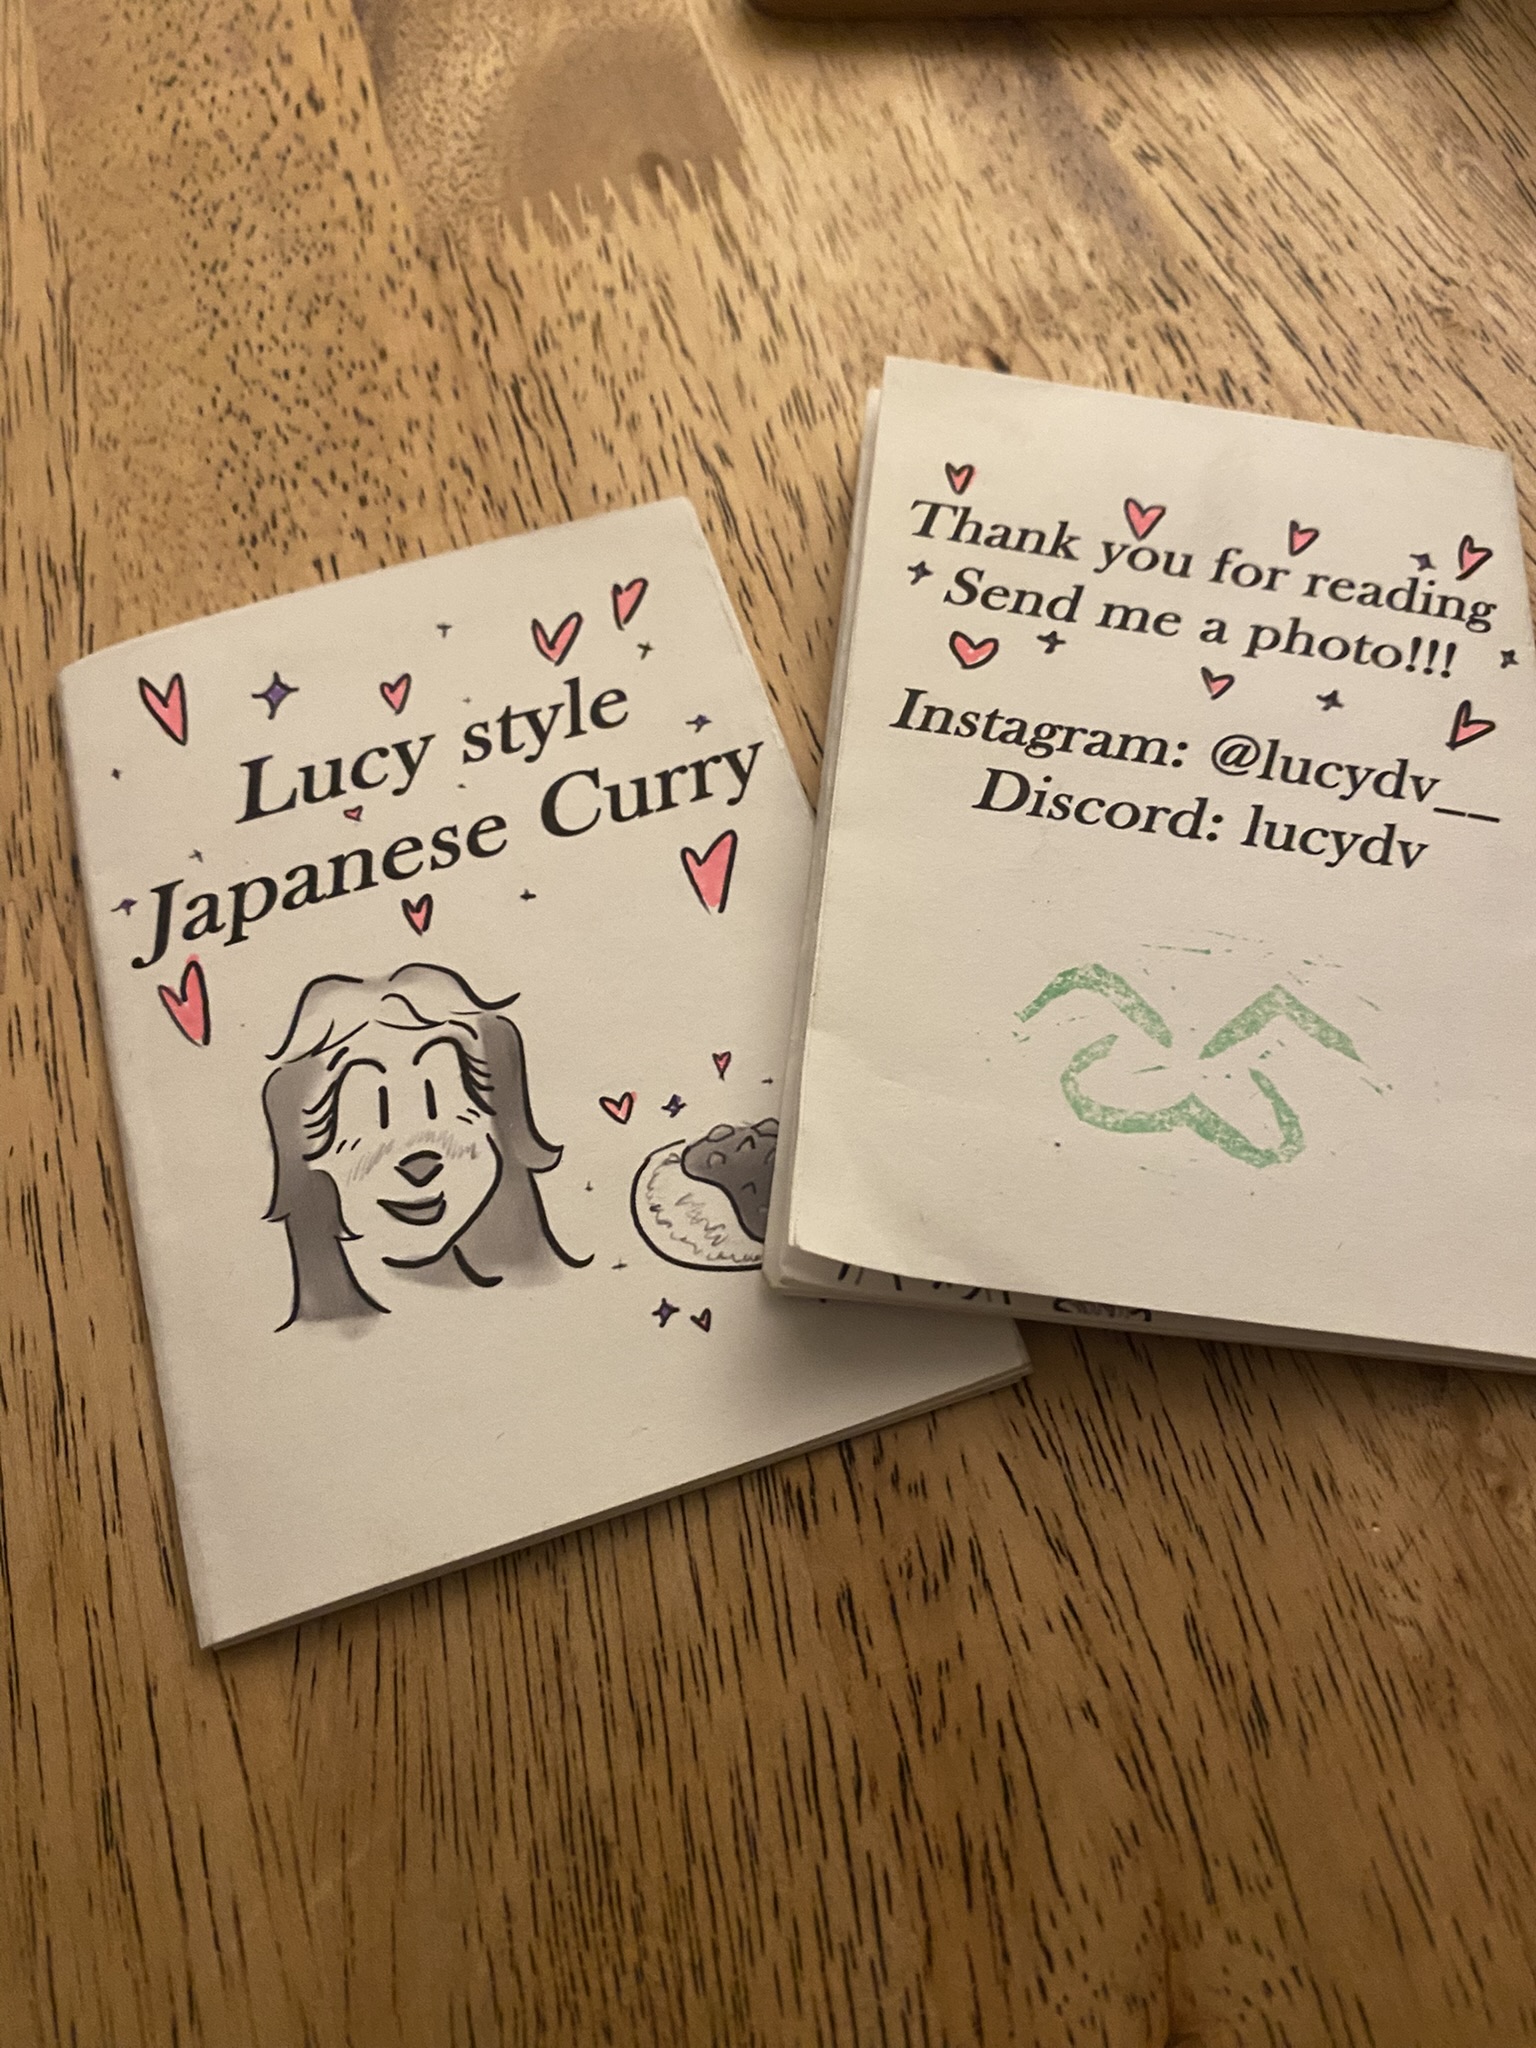 Lucy style
Japanese Curry
Thank you for reading
Send me a photo!!!
Instagram: @lucydv__
Discord: lucydv